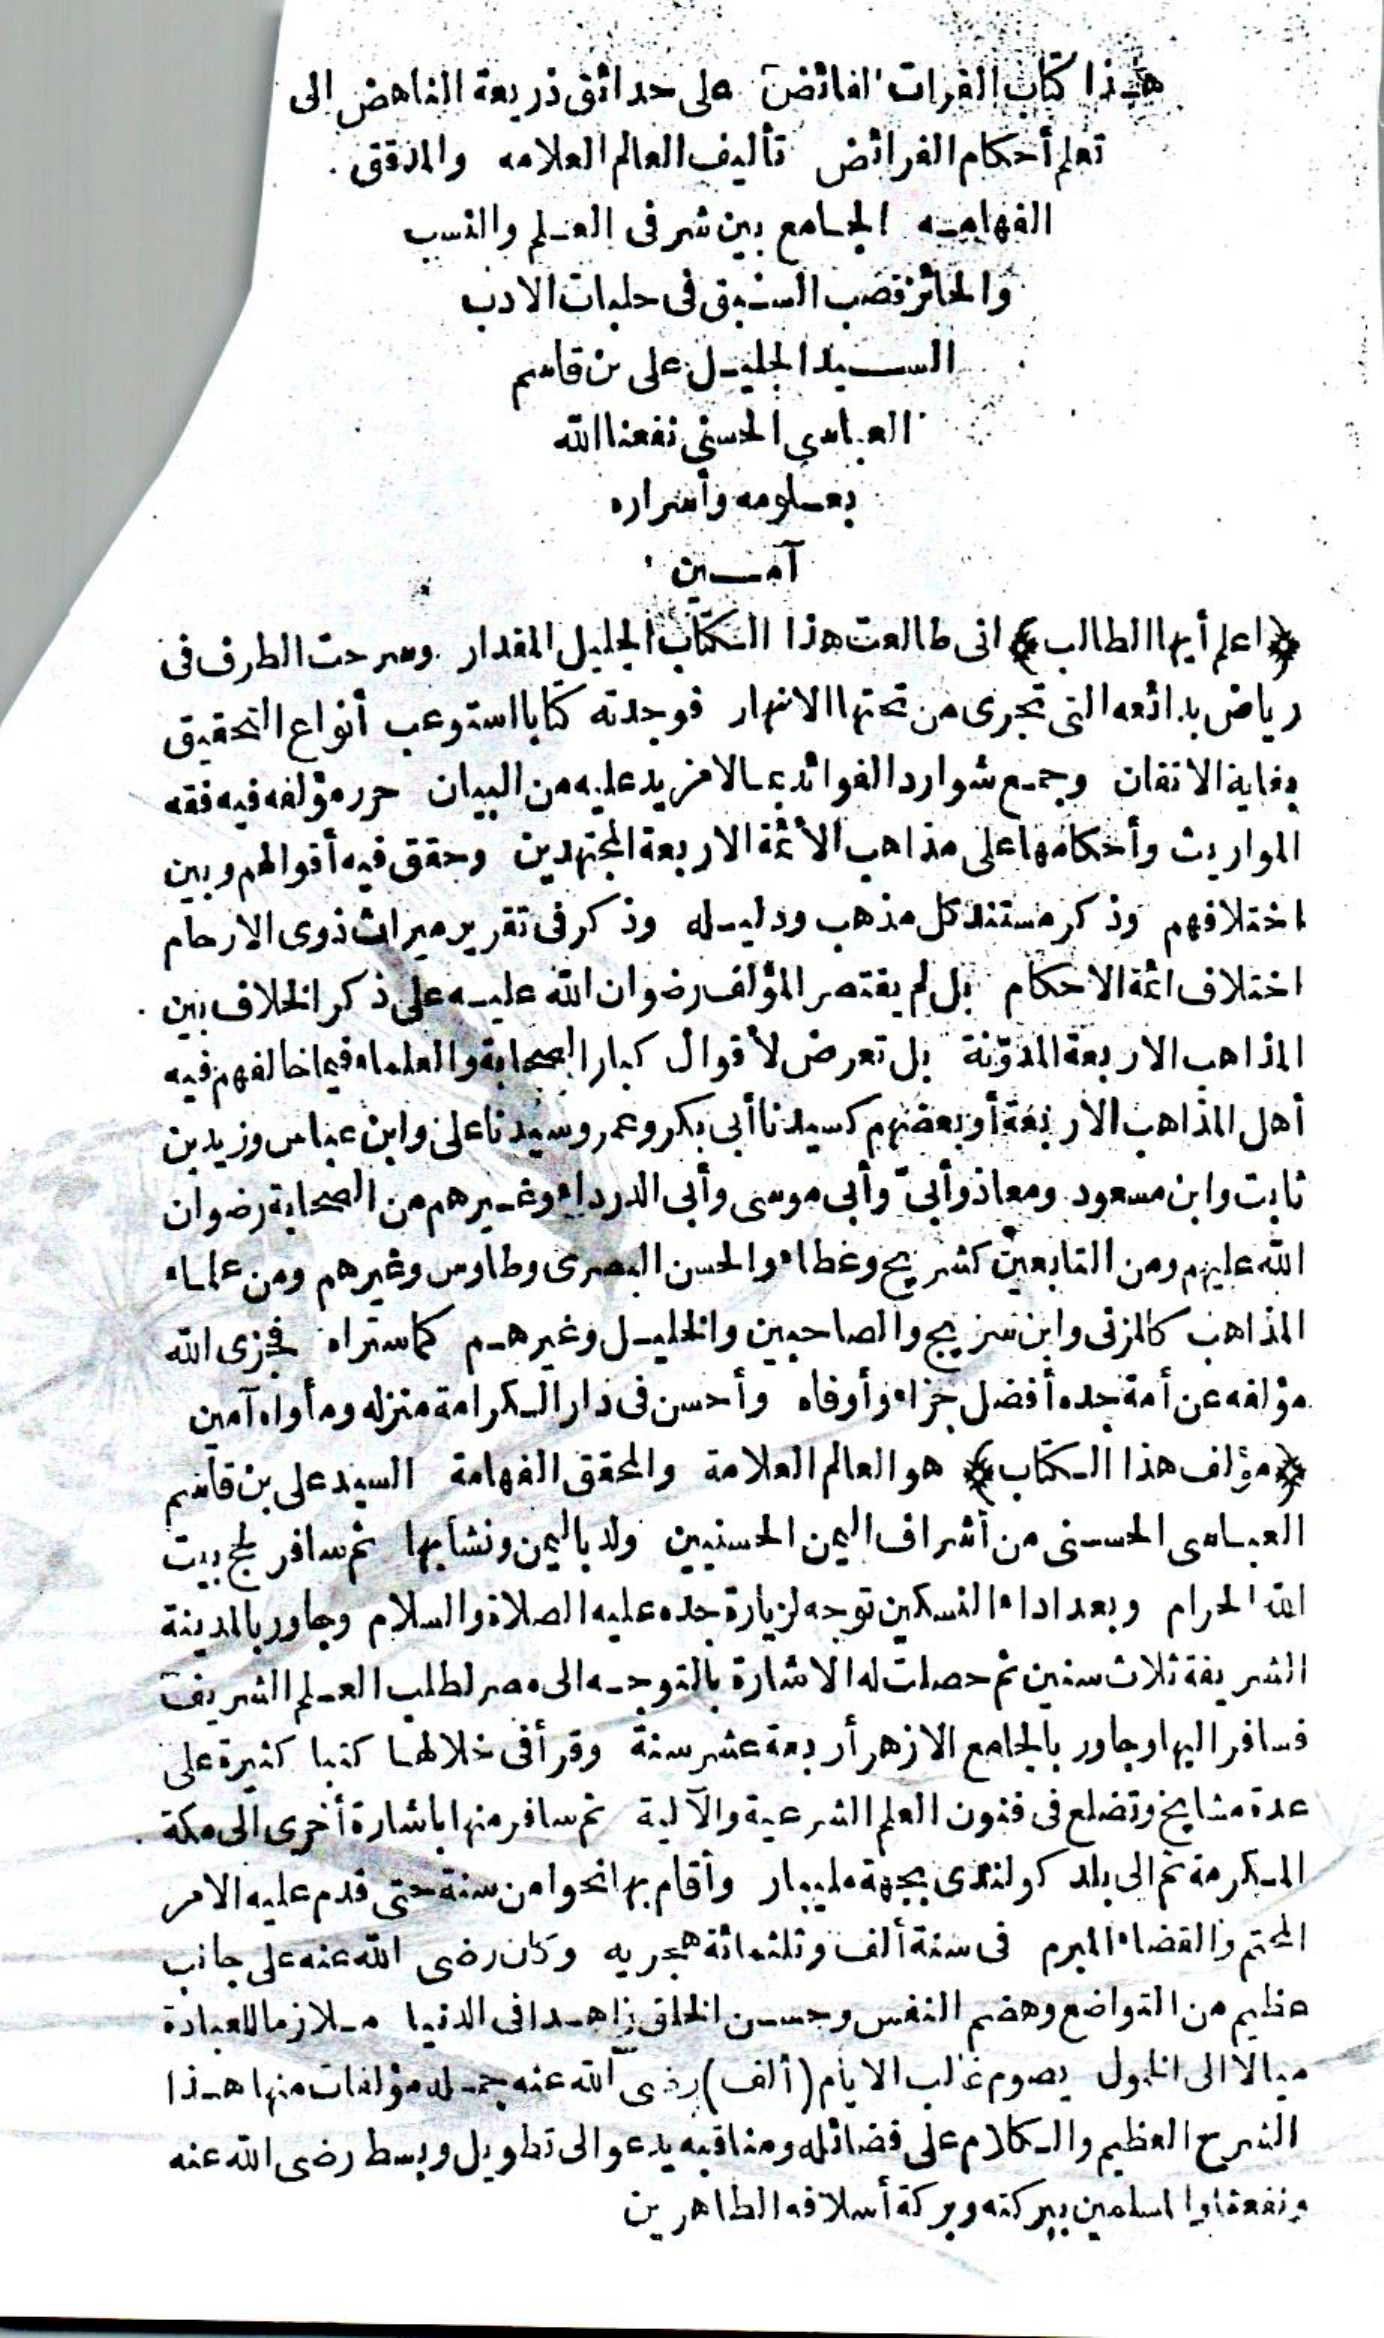 هذا كتاب الفرات الفائض على حدائق ذريعة الناهض الى
تعلم أحكام الفرائض تأليف العالم العلامه والمدقق
الفهامه الجامع بين شرفى العلم والنسب
والحائز قصب السبق فى حلبات الادب
السيد الجليل على بن قاسم
العباسى الحسنى نفعنا الله
بعلومه وأسراره
آمين
﴿اعلم أيها الطالب﴾ انى طالعت هذا الكتاب الجليل المقدار وسرحت الطرف فى
رياض بدائعه التى تجرى من تحتها الانهار فوجدته كتابا استوعب أنواع التحقيق
بغاية الاتقان وجمع شوارد الفوائد بما لا مزيد عليه من البيان حرر مؤلفه فيه فقه
المواريث وأحكامها على مذاهب الأئمة الاربعة المجتهدين وحقق فيه أقوالهم وبين
اختلافهم وذكر مستند كل مذهب ودليله وذكر فى تقرير ميراث ذوى الارحام
اختلاف ائمة الاحكام بل لم يقتصر المؤلف رضوان الله عليه على ذكر الخلاف بين
المذاهب الاربعة المدوّنة بل تعرض لأقوال كبار الصحابة والعلماء فيما خالفهم فيه
أهل المذاهب الاربعة أو بعضهم كسيدنا أبى بكر وعمر وسيدنا على وابن عباس وزيد بن
ثابت وابن مسعود ومعاذ وأبىّ وأبى موسى وأبى الدرداء وغيرهم من الصحابة رضوان
الله عليهم ومن التابعين كشريح وعطاء والحسن البصرى وطاوس وغيرهم ومن علماء
المذاهب كالمزنى وابن سريج والصاحبين والخليل وغيرهم كما ستراه فجزى الله
مؤلفه عن أمة جده أفضل جزاء وأوفاه وأحسن فى دار الكرامة منزله ومأواه آمين
﴿مؤلف هذا الكتاب﴾ هو العالم العلامة والمحقق الفهامة السيد على بن قاسم
العباسى الحسنى من أشراف اليمن الحسنيين ولد باليمن ونشأ بها ثم سافر لحج بيت
الله الحرام وبعد اداء النسكين توجه لزيارة جده عليه الصلاة والسلام وجاور بالمدينة
الشريفة ثلاث سنين ثم حصلت له الاشارة بالتوجه الى مصر لطلب العلم الشريف
فسافر اليها وجاور بالجامع الازهر أربعة عشر سنة وقرأ فى خلالها كتبا كثيرة على
عدة مشايخ وتضلع فى فنون العلم الشرعية والآلية ثم سافر منها باشارة أخرى الى مكة
المكرمة ثم الى بلد كولندى بجهة مليبار وأقام بها نحوا من سنة حتى قدم عليه الامر
المحتم والقضاء المبرم فى سنة ألف وثلثمائة هجريه وكان رضى الله عنه على جانب
عظيم من التواضع وهضم النفس وحسن الخلق زاهدا فى الدنيا ملازما للعبادة
ميالا الى الخمول يصوم غالب الايام (ألف) رضى الله عنه جملة مؤلفات منها هذا
الشرح العظيم والكلام على فضائله ومناقبه يدعو الى تطويل وبسط رضى الله عنه
ونفعنا والمسلمين ببركته وبركة أسلافه الطاهرين